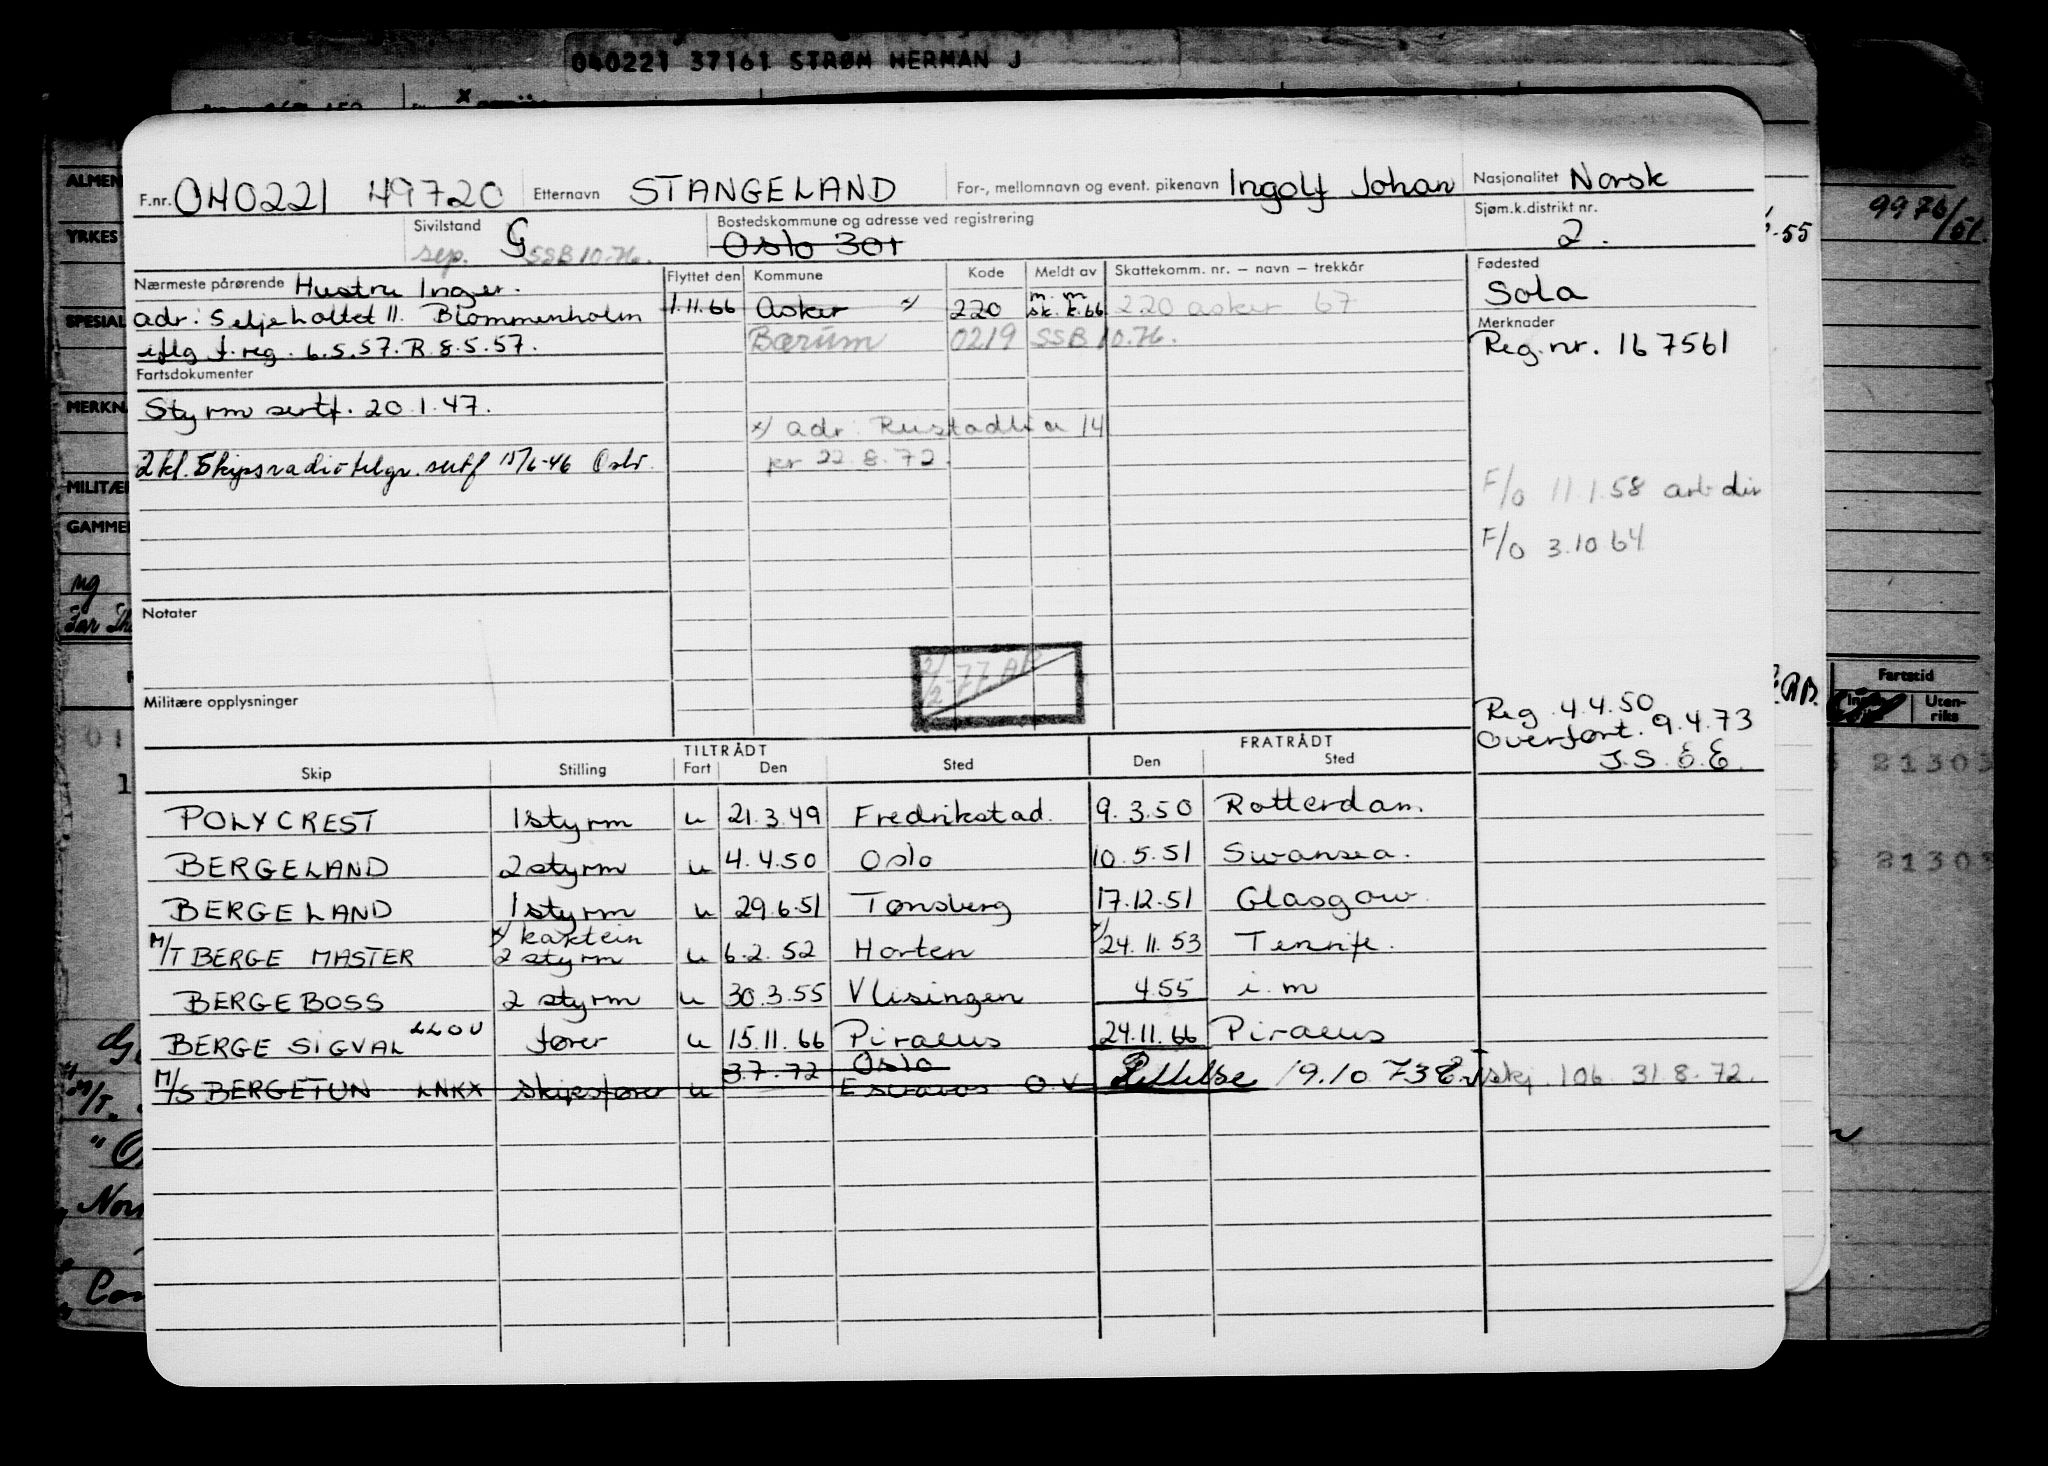 040221 37161 STRØM HERMAN J
F.nr. 040221 49720 Etternavn STANGELAND For-, mellomnavn og event. pikenavn Ingolf Johan Nasjonalitet Norsk
Sivilstand sep. G SSB 10.76. Bostedskommune og adresse ved registrering Oslo 301 Sjøm.k.distrikt nr. 2.
Nærmeste pårørende Hustru Inger.
adr: Seljeholtet 11. Blommenholm
iflg f.reg. 6.5.57. R 8.5.57.
Flyttet den Kommune Kode Meldt av Skattekomm. nr. – navn – trekkår
1.11.66 Asker x) 220 m. m. sk. k. 66 220 asker 67
Bærum 0219 SSB 10.76.
x) adr: Rustadlia 14
pr 22.8.72.
Fødested
Sola
Merknader
Reg.nr. 167561
F/o 11.1.58 arb dir
F/o 3.10.64
Reg. 4.4.50
Overført. 9.4.73
J.S. E.E.
Fartsdokumenter
Styrm sertf. 20.1.47.
2 kl. Skipsradiotelgr. sertf 15/6-46 Oslo.
Notater
Militære opplysninger
TILTRÅDT FRATRÅDT
Skip Stilling Fart Den Sted Den Sted
POLYCREST 1 styrm u 21.3.49 Fredrikstad. 9.3.50 Rotterdam.
BERGELAND 2 styrm u 4.4.50 Oslo 10.5.51 Swansea.
BERGELAND 1 styrm u 29.6.51 Tønsberg 17.12.51 Glasgow
x) kaptein
M/T BERGE MASTER 2 styrm u 6.2.52 Horten x) 24.11.53 Tenrife.
BERGEBOSS 2 styrm u 30.3.55 Vlisingen 4.55 i.m
BERGE SIGVAL LLOU fører u 15.11.66 Piraeus 24.11.66 Piraeus
3.7.72 Oslo
M/S BERGETUN LNKX skipsfører u Escravos O.V 19.10.73 skj. 106. 31.8.72.
ALMEN
YRKES
SPESIAL
MERKN
MILITÆR
GAMMEL
9976/51.
-55
RB.
Fartstid
Uten-
riks
21303
21303